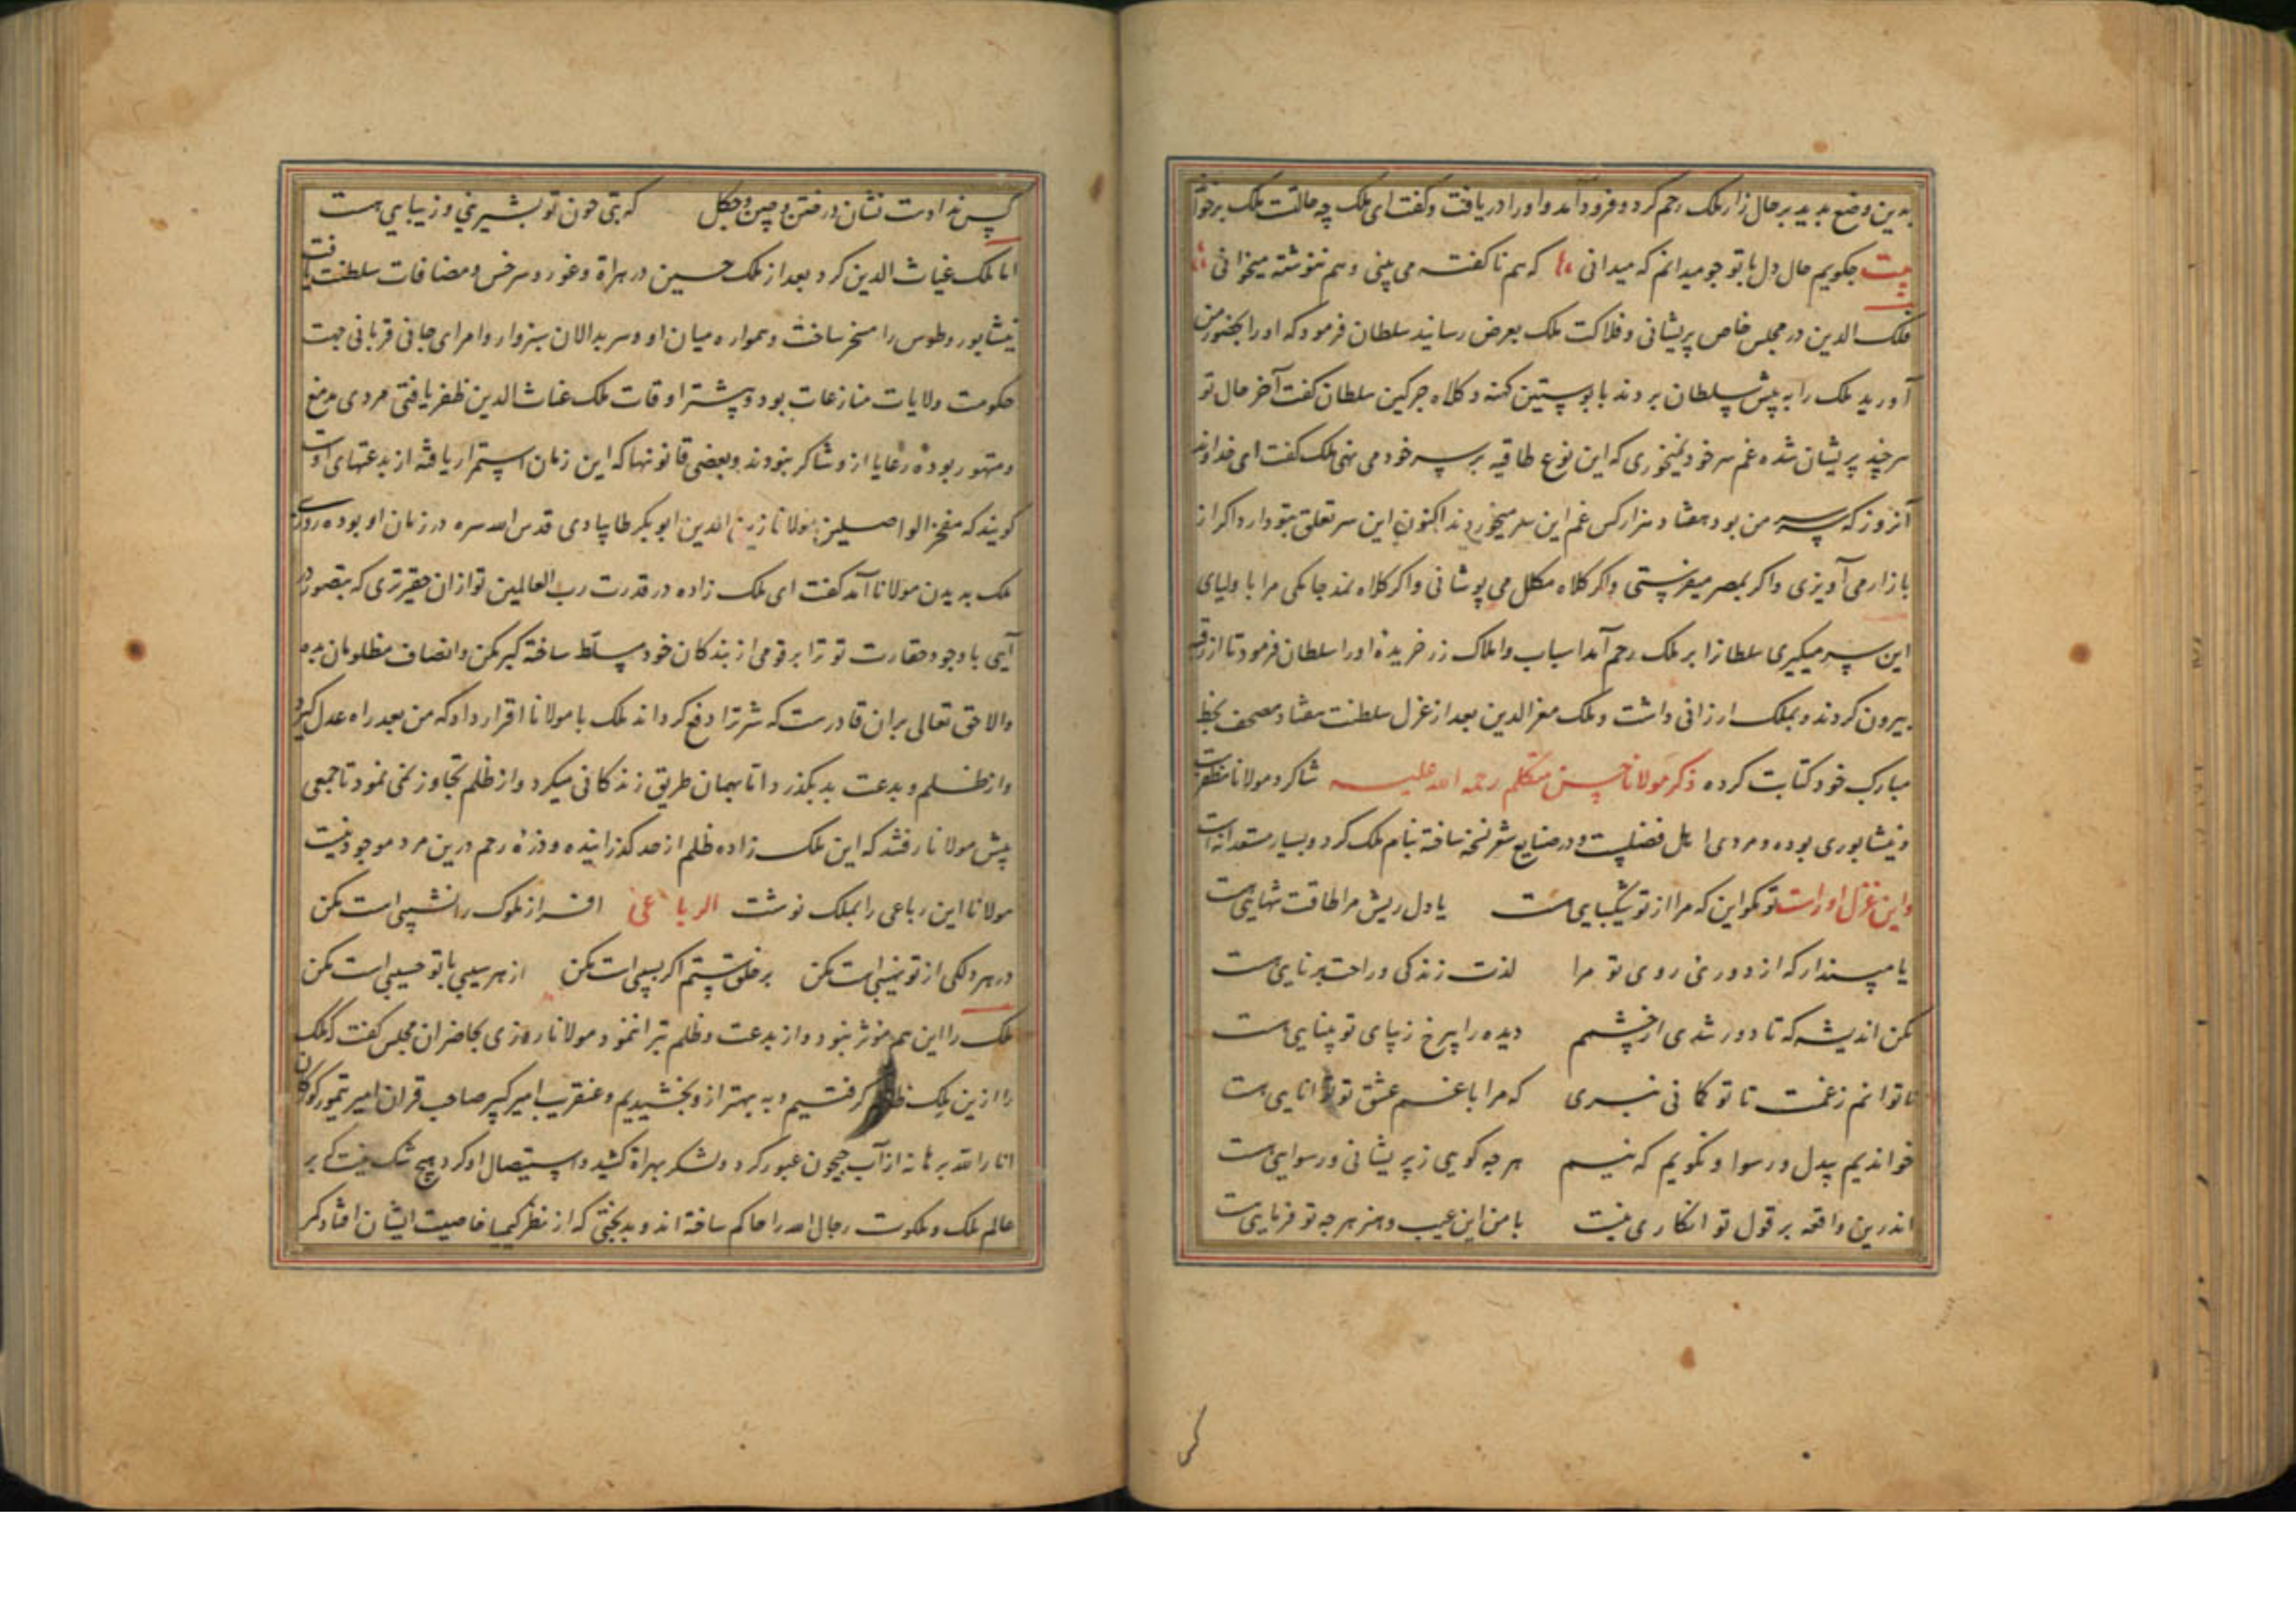 بدین وضع بدید بر حال زار ملک رحم کرد و فرود آمد و اورا دریافت و کفت ای ملک چه حالتست ملک بر خواند
بیت جکویم حال دل با تو جو میدانم که میدانی که هم ناکفته می بینی و هم ننوشته میخوانی
فلک الدین در مجلس خاص پریشانی و فلاکت ملک بعرض رسانید سلطان فرمود که اورا بحضور من
آورید ملک را به پیش سلطان بردند با پوستین کهنه و کلاه جرکین سلطان کفت آخر حال تو
هر چند پریشان شده غم سر خود نمیخوری که این نوع طاقیه بر سر خود می نهی ملک کفت ای خداوند
آنروز که سر من بود هفتاد هزار کس غم این سر میخوردند اکنون این سر تعلق بتو دارد اکر از
بازار می آویزی و اکر بمصر میفرستی و اکر کلاه مکلل می پوشانی و اکر کلاه نمد
این سر میکیری سلطانرا بر ملک رحم آمد اسباب و املاک زر خریده اورا سلطان فرمود تا از
بیرون کردند و بملک ارزانی داشت و ملک معز الدین بعد از عزل سلطنت هفتاد مصحف بخط
مبارک خود کتابت کرده ذکر مولانا حسن متکلم رحمه الله علیه شاکرد مولانا مظفرست
و نیشابوری بوده و مردی اهل فضلست و در صنایع شعر نسخه ساخته بنام ملک کرد و بسیار مستعدانه است
و این غزل اوراست تو مکو این که مرا از تو شکیبایی هست یا دل ریش مرا طاقت تنهایی هست
یا مپندار که از دوری روی تو مرا لذت زندکی و راحت برنایی هست
مکن اندیشه که تا دور شدی از چشمم دیده را بی رخ زیبای تو بینایی هست
تا توانم ز غمت تا تو کمانی نبری که مرا با غم عشق تو توانایی هست
خواندیم بیدل و رسوا و نکویم که نیم هر چه کویی ز پریشانی و رسوایی هست
اندرین واقعه بر قول تو انکاری نیست با من این عیب و هنر هر چه تو فرمایی هست
کس ندادست نشان در ختن و چین و چکل که بتی چون تو بشیرینی و زیبایی هست
اما ملک غیاث الدین کرد بعد از ملک حسین در هراة و غور و سرخس و مضافات سلطنت یافت
نیشابور و طوس را مسخر ساخت و همواره میان او و سربدالان سبزوار و امرای جانی قربانی جهت
حکومت ولایات منازعات بود و بیشتر اوقات ملک غیاث الدین ظفر یافتی مردی
و متهور بوده رعایا ازو شاکر نبودند و بعضی قانونها که این زمان استمرار یافته از بدعتهای اوست
کویند که مفخر الواصلین مولانا زین الدین ابو بکر طایبادی قدس الله سره در زمان او بوده روزی
ملک بدیدن مولانا آمد کفت ای ملک زاده در قدرت رب العالمین تو از ان حقیرتری که بتصور در
آیی با وجود حقارت تو ترا بر قومی از بندکان خود مسلط ساخته کبر مکن و انصاف مظلومان بده
و الا حق تعالی بران قادرست که شر ترا دفع کرداند ملک با مولانا اقرار داد که من بعد راه عدل کیرد
و از ظلم و بدعت بد بکذرد اما بهمان طریق زندکانی میکرد و از ظلم تجاوز نمی نمود تا جمعی
پیش مولانا رفتند که این ملک زاده ظلم از حد کذرانیده و ذرهٔ رحم درین مرد موجود نیست
مولانا این رباعی را بملک نوشت الرباعی افراز ملوک را نشیبی است مکن
در هر دلکی از تو نهیبی است مکن بر خلق ستم اکر بسیبی است مکن از هر سیبی با تو حسیبی است مکن
ملک را این هم موثر نبود و از بدعت و ظلم تبرا ننمود مولانا روزی بحاضران مجلس کفت که ملک
را ازین ملک ظالم کرفتیم و به بهتر ازو بخشیدیم و عنقریب امیر کبیر صاحب قران امیر تیمور کورکان
انار الله برهانه از آب جیحون عبور کرد و لشکر بهراة کشید و استیصال او کرد هیچ شک نیست که بر
عالم ملک و ملکوت رجال الله را حاکم ساخته اند و بدبختی که از نظر کیمیا خاصیت ایشان افتاد کر